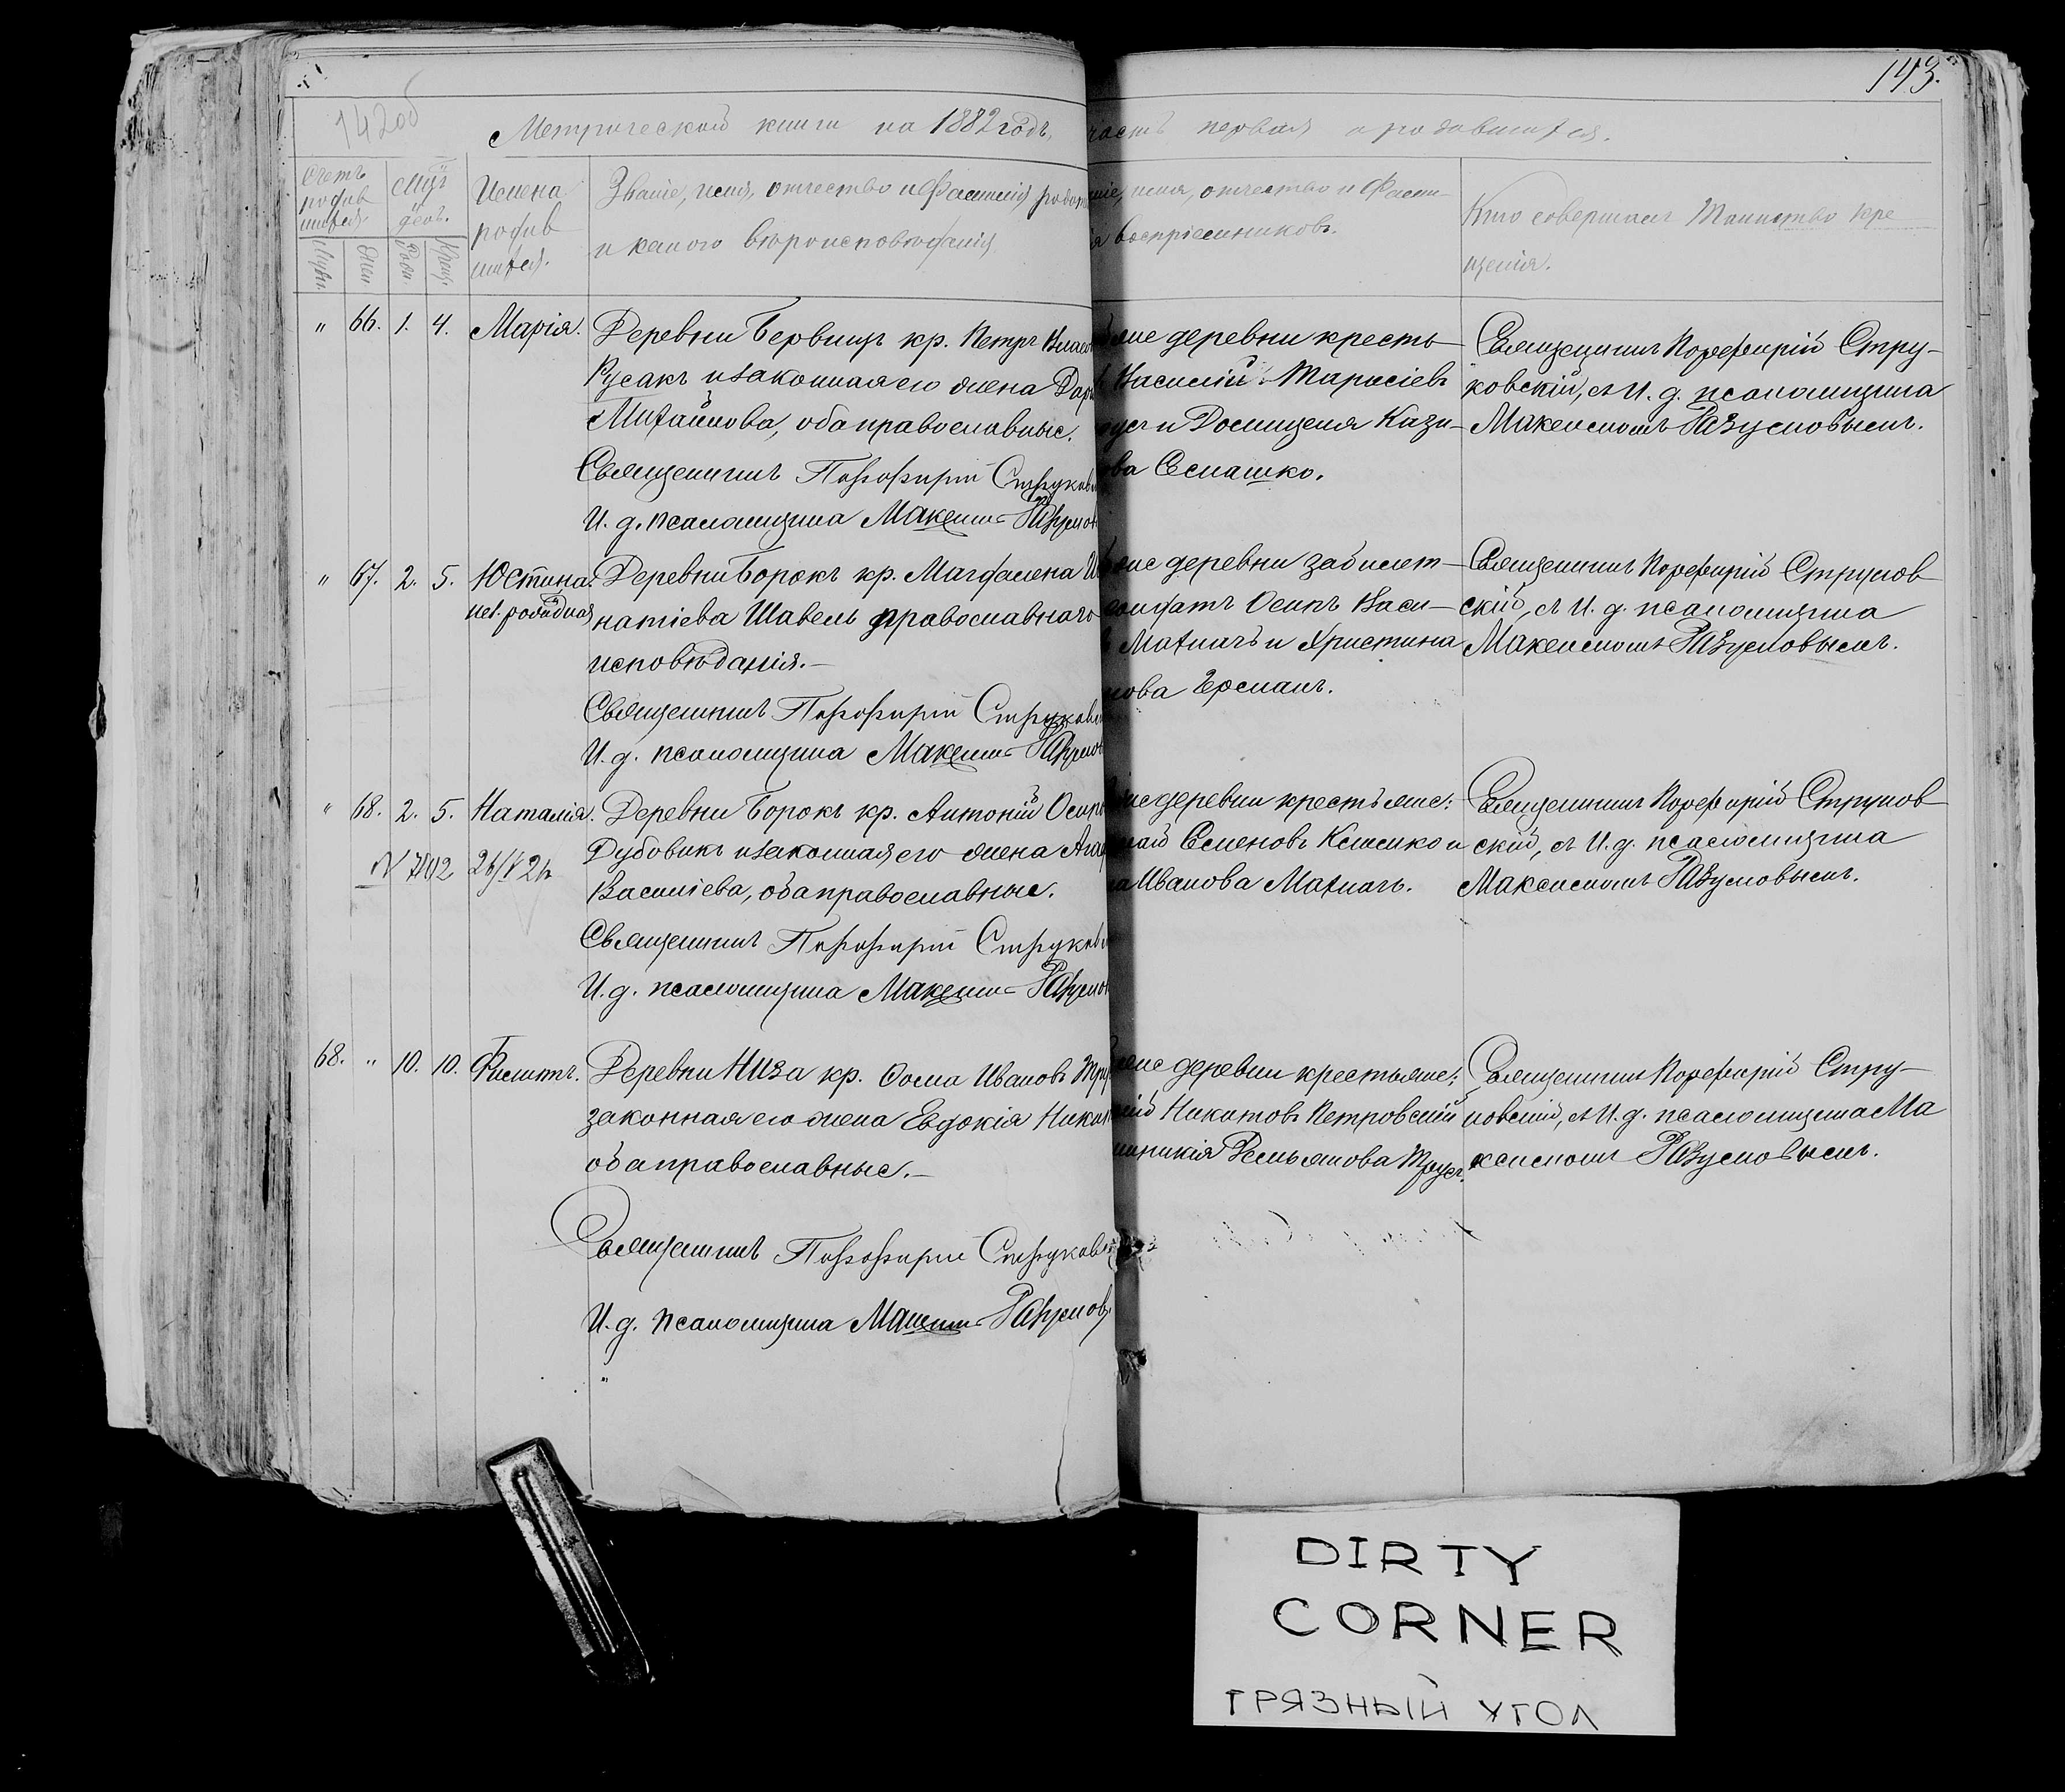 143.
142об
Метрической книги на 1882 годъ, часть первая о родившихся.
Счетъ родив шихся
Мѣс. день.
Имена родив шихся.
Званіе, имя, отчество и фамилія родит
и какого вѣроисповѣданія
ніе, имя, отчество и фами-
я воспріемниковъ.
Кто совершалъ Таинство кре
щенія.
Муж. Жен. Рожд. Крещ.
" 66. 1. 4. Марія.
Деревни Бервищъ кр. Петръ Власо
Русакъ и законная его жена Дар
Михайлова, оба православные.
Священникъ Порфирій Струков
И. д. псаломщика Максимъ Разумов
же деревни кресть-
Василій Тарасіевъ
и Домицеля Кази-
ва Семашко.
Священникъ Порфирій Стру-
ковскій, съ И. д. псаломщика
Максимомъ Разумовымъ.
" 67. 2. 5. Юстина.
нез. рожденая
Деревни Борокъ кр. Магдалена И
натіева Шавель православнаго
исповѣданія.-
Священникъ Порфирій Струков
И. д. псаломщика Максимъ Разумов
же деревни забилет-
солдатъ Осипъ Васи-
Махначъ и Христина
нова Германъ.
Священникъ Порфирій Струков-
скій, съ И. д. псаломщика
Максимомъ Разумовымъ.
" 68. 2. 5. Наталія.
N 7102
Деревни Борокъ кр. Антоній Осипо
Дубовикъ и законная его жена Ага
Василіева, оба православные.
Священникъ Порфирій Струков
И. д. псаломщика Максимъ Разумов
же деревни крестьяне:
Семеновъ Клименко и
Иванова Махначъ.
Священникъ Порфирій Струков-
скій, съ И. д. псаломщика
Максимомъ Разумовымъ.
68. " 10. 10. Филиппъ.
Деревни Низа кр. Ѳома Ивановъ Тру
законная его жена Евдокія Никол
оба православные.-
Священникъ Порфирій Струков
И. д. псаломщика Максимъ Разумовъ
же деревни крестьяне:
Никитовъ Петровскій
Демьянова Трусъ.
Священникъ Порфирій Стру-
ковскій, съ И. д. псаломщика Ма
ксимомъ Разумовымъ.
DIRTY
CORNER
ГРЯЗНЫЙ УГОЛ